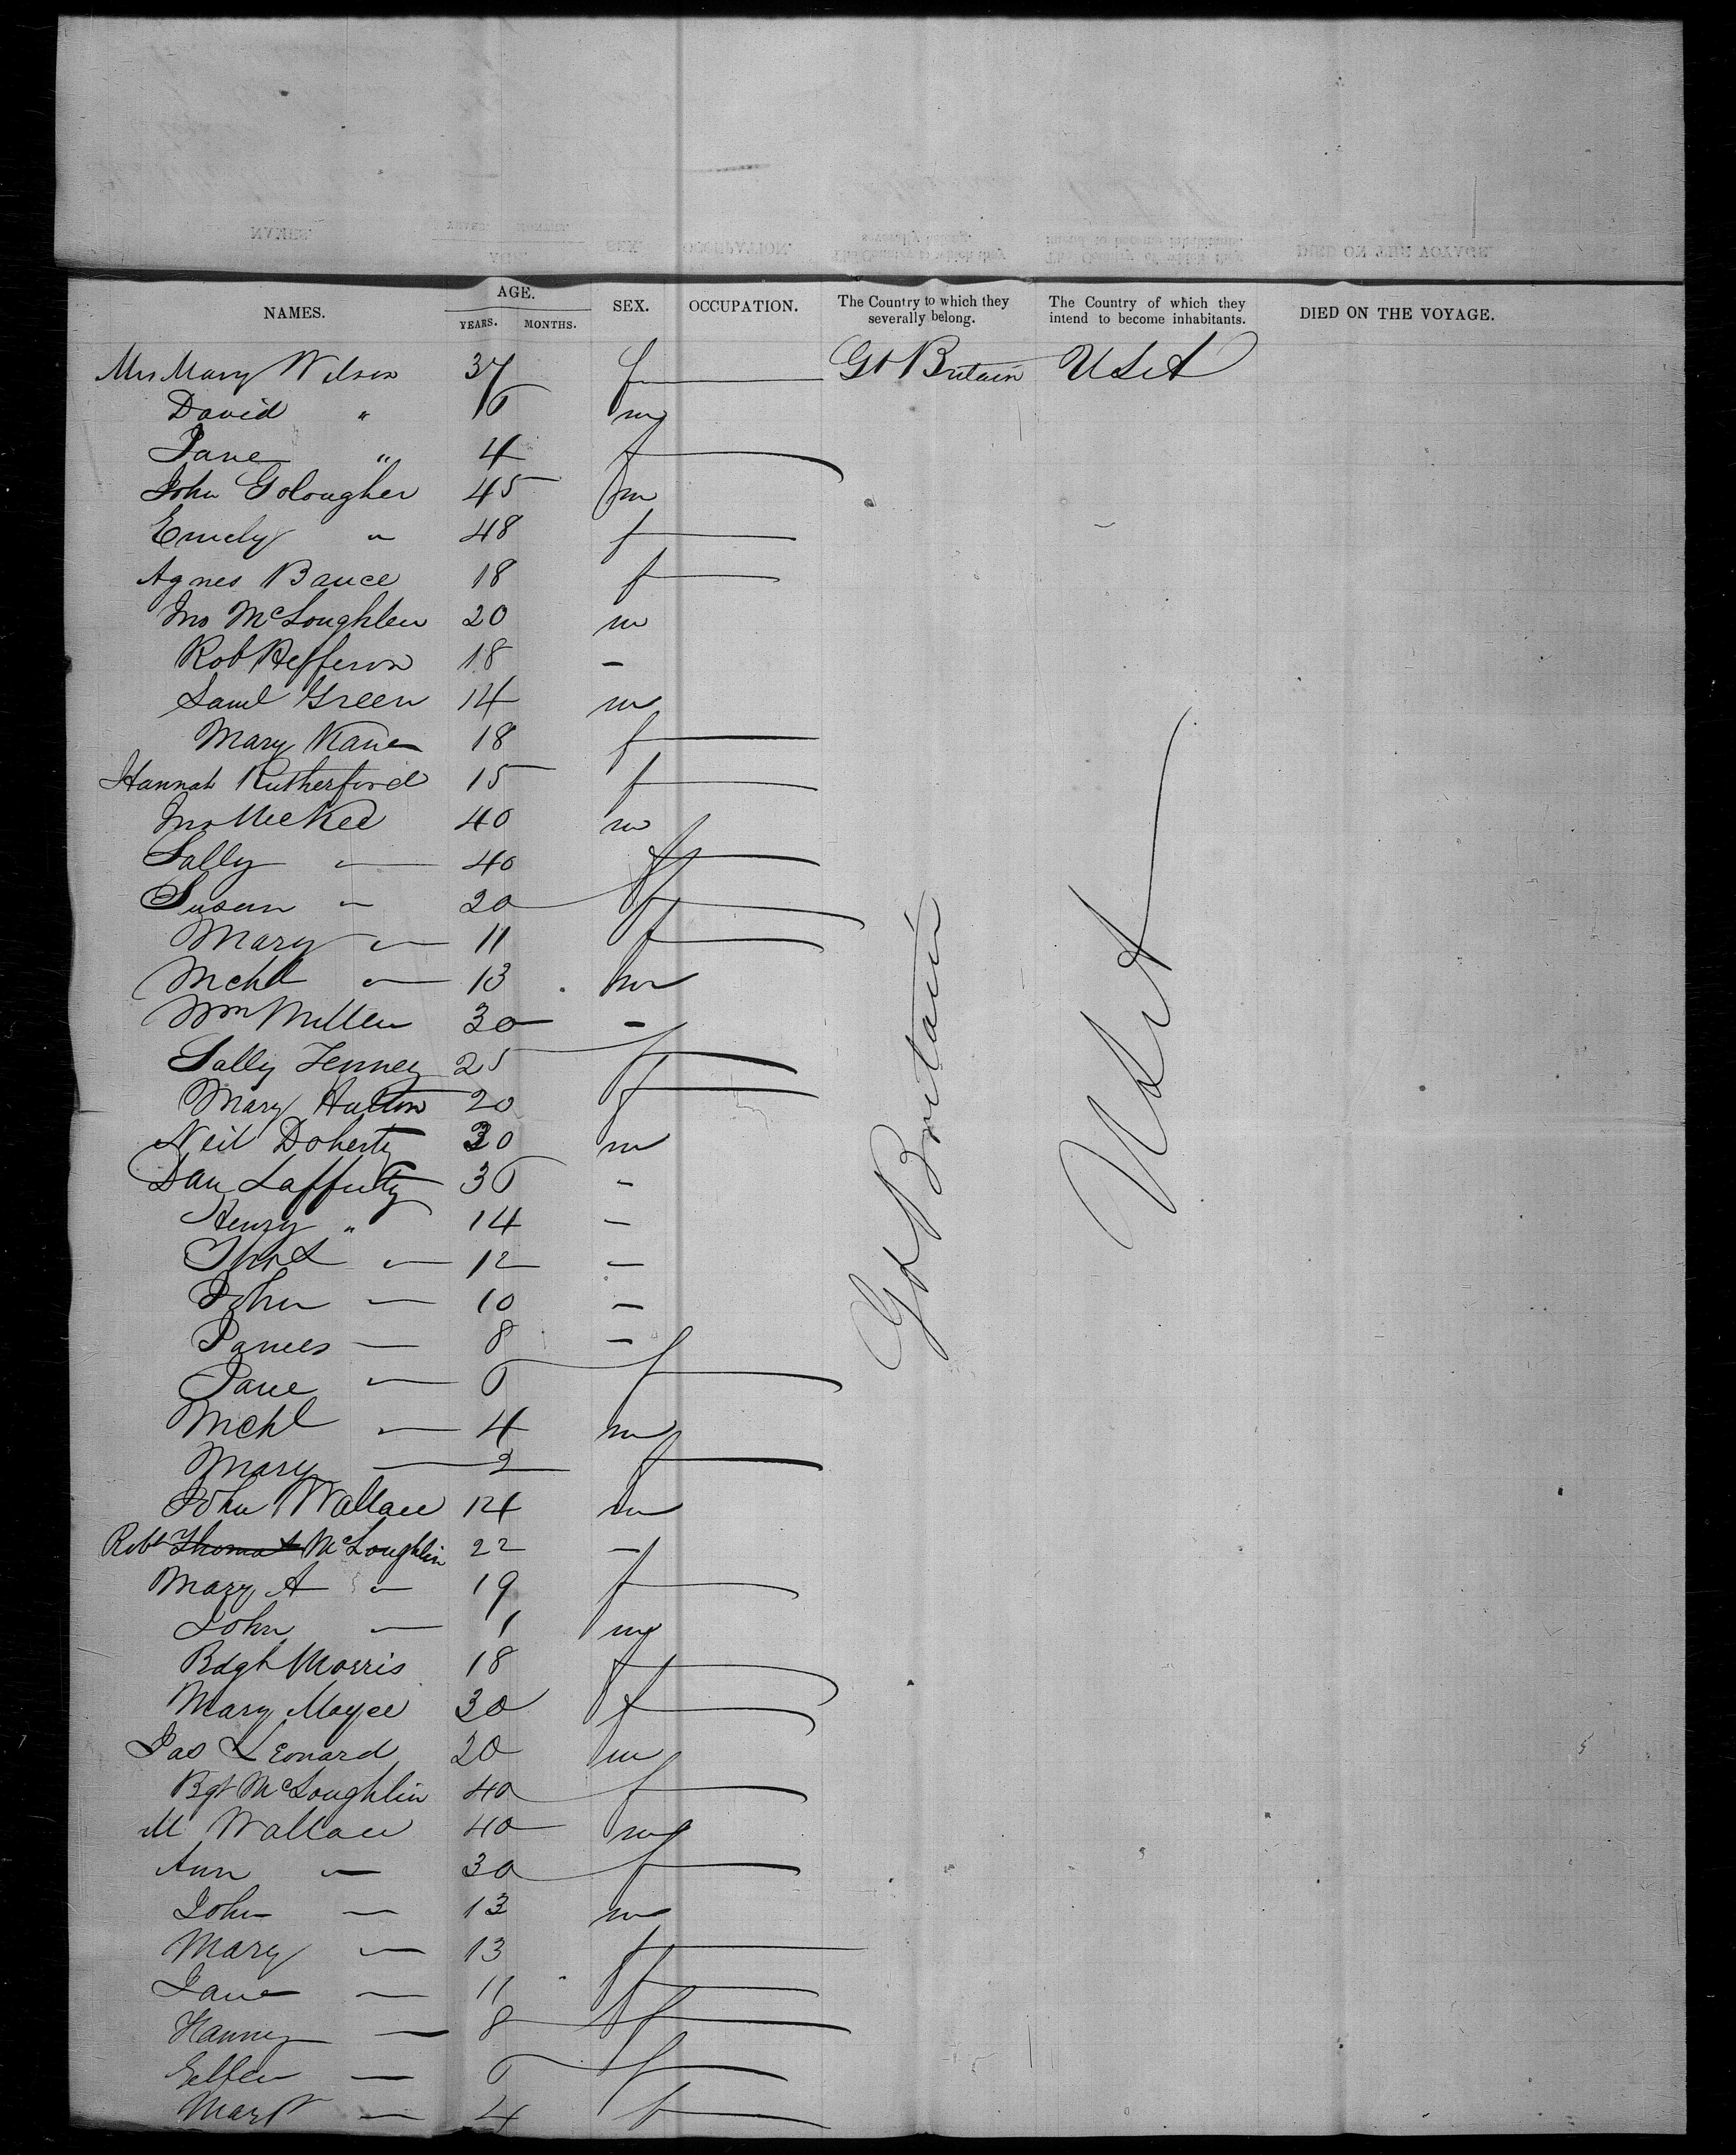 NAMES. AGE. SEX. OCCUPATION. The Country to which they severally belong. The Country of which they intend to become inhabitants. DIED ON THE VOYAGE.
YEARS. MONTHS.
Mrs Mary Wilson 37 f Gt Britain USA
David " 16 m
Jane " 4 f
John Gologher 45 m
Emely " 48 f
Agnes Bauce 18 f
Jno McLoughlen 20 m
Rob Hefferon 18 -
Saml Green 14 m
Mary Kane 18 f
Hannah Rutherford 15 f
Jno McKee 40 m
Sally " 40 f
Susan " 20 f
Mary " 11 f
Mchl " 13 m
Wm Millen 30 -
Sally Fenney 25 f
Mary Hutton 20 f
Neil Doherty 30 m
Dan Lafferty 36 -
Henry " 14 -
" 12 -
John " 10 -
James " 8 -
Jane " 6 f
Mchl " 4 m
Mary " 2 f
John Wallace 14 m
Robt Thomas McLoughlin 22 -
Mary A " 19 f
John " 1 m
Bdgt Morris 18 f
Mary Magee 30 f
Jas Leonard 20 m
Bgt McLoughlin 40 f
M Wallace 40 m
Ann " 30 f
John " 13 m
Mary " 13 f
Jane " 11 f
Hanney " 8 f
Ellen " 6 f
Mary " 4 f
Gt Britain
USA